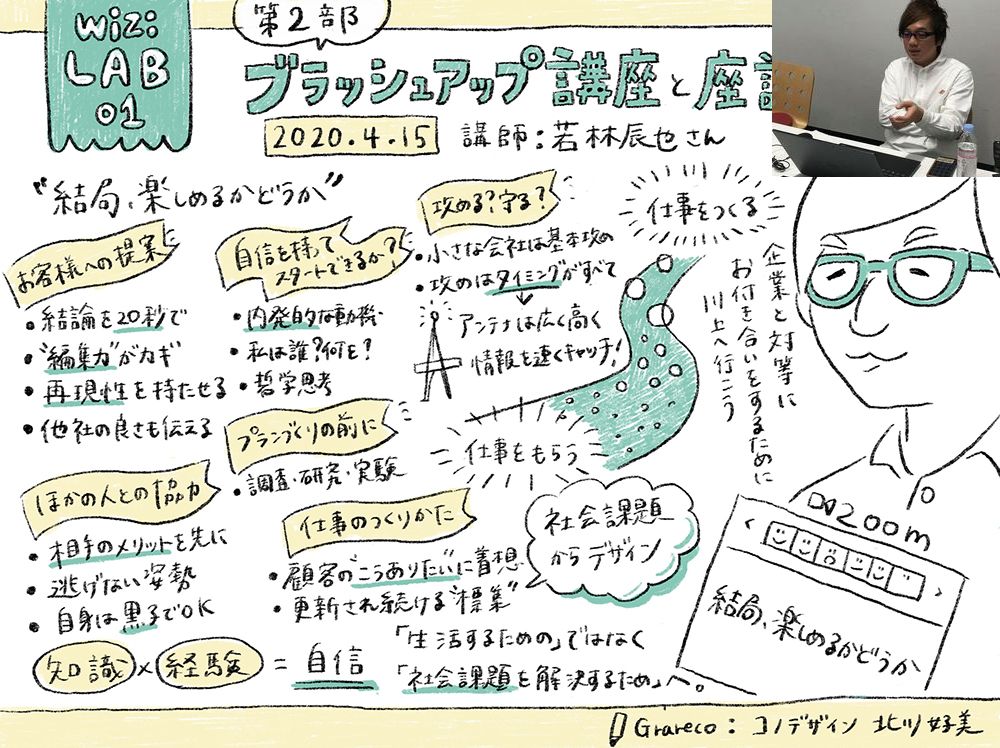 wiz:
LAB
01
第2部
ブラッシュアップ講座と座
2020.4.15
講師:若林辰也さん
"結局、楽しめるかどうか"
お客様への提案
・結論を20秒で
・"編集力"がカギ
・再現性を持たせる
・他社の良さも伝える
自信を持って
スタートできるか?
・内発的な動機
・私は誰?何を?
・哲学思考
攻める?守る?
・小さな会社は基本攻め
・攻めはタイミングがすべて
アンテナは広く高く
情報を速くキャッチ!
仕事をつくる
企業と対等に
お付き合いをするために
川上へ行こう
仕事をもらう
プランづくりの前に
・調査・研究・実験
ほかの人との協力
・相手のメリットを先に
・逃げない姿勢
・自身は黒子でOK
仕事のつくりかた
・顧客の"こうありたい"に着想
・更新され続ける"標集"
社会課題
からデザイン
知識×経験=自信
「生活するための」ではなく
「社会課題を解決するため」へ。
zoom
結局、楽しめるかどうか
Grareco:コノデザイン 北川好美